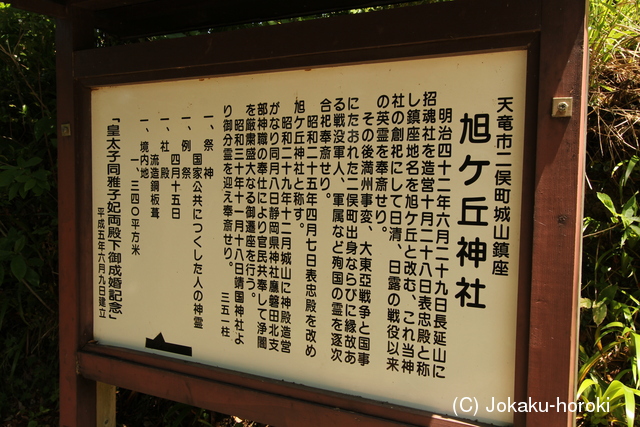 天竜市二俣町城山鎮座
旭ケ丘神社
明治四十二年六月二十九日長延山に
招魂社を造営十月二十八日表忠殿と称
し鎮座地名を旭ケ丘と改む、これ当神
社の創祀にして日清、日露の戦役以来
の英霊を奉斎せり。
その後満州事変、大東亞戦争と国事
にたおれた二俣町出身ならびに縁故あ
る戦没軍人、軍属など殉国の霊を逐次
合祀奉斎せり。
昭和二十五年四月七日表忠殿を改め
旭ケ丘神社と称す。
昭和二十九年十二月城山に神殿造営
がなり同月八日静岡県神社廳磐田北支
部神職の奉仕により官民共奉して浄闇
を厳粛盛大なる御遷座を行う。
昭和三十年十一月十八日靖国神社よ
り御分霊を迎え奉斎せり 三五一柱
一、祭神
国家公共につくした人の神霊
一、例祭
四月十五日
一、社殿
流造銅板葺
一、境内地
一、三四〇平方米
「皇太子同雅子妃両殿下御成婚記念」
平成五年六月九日建立
(C) Jokaku-horoki